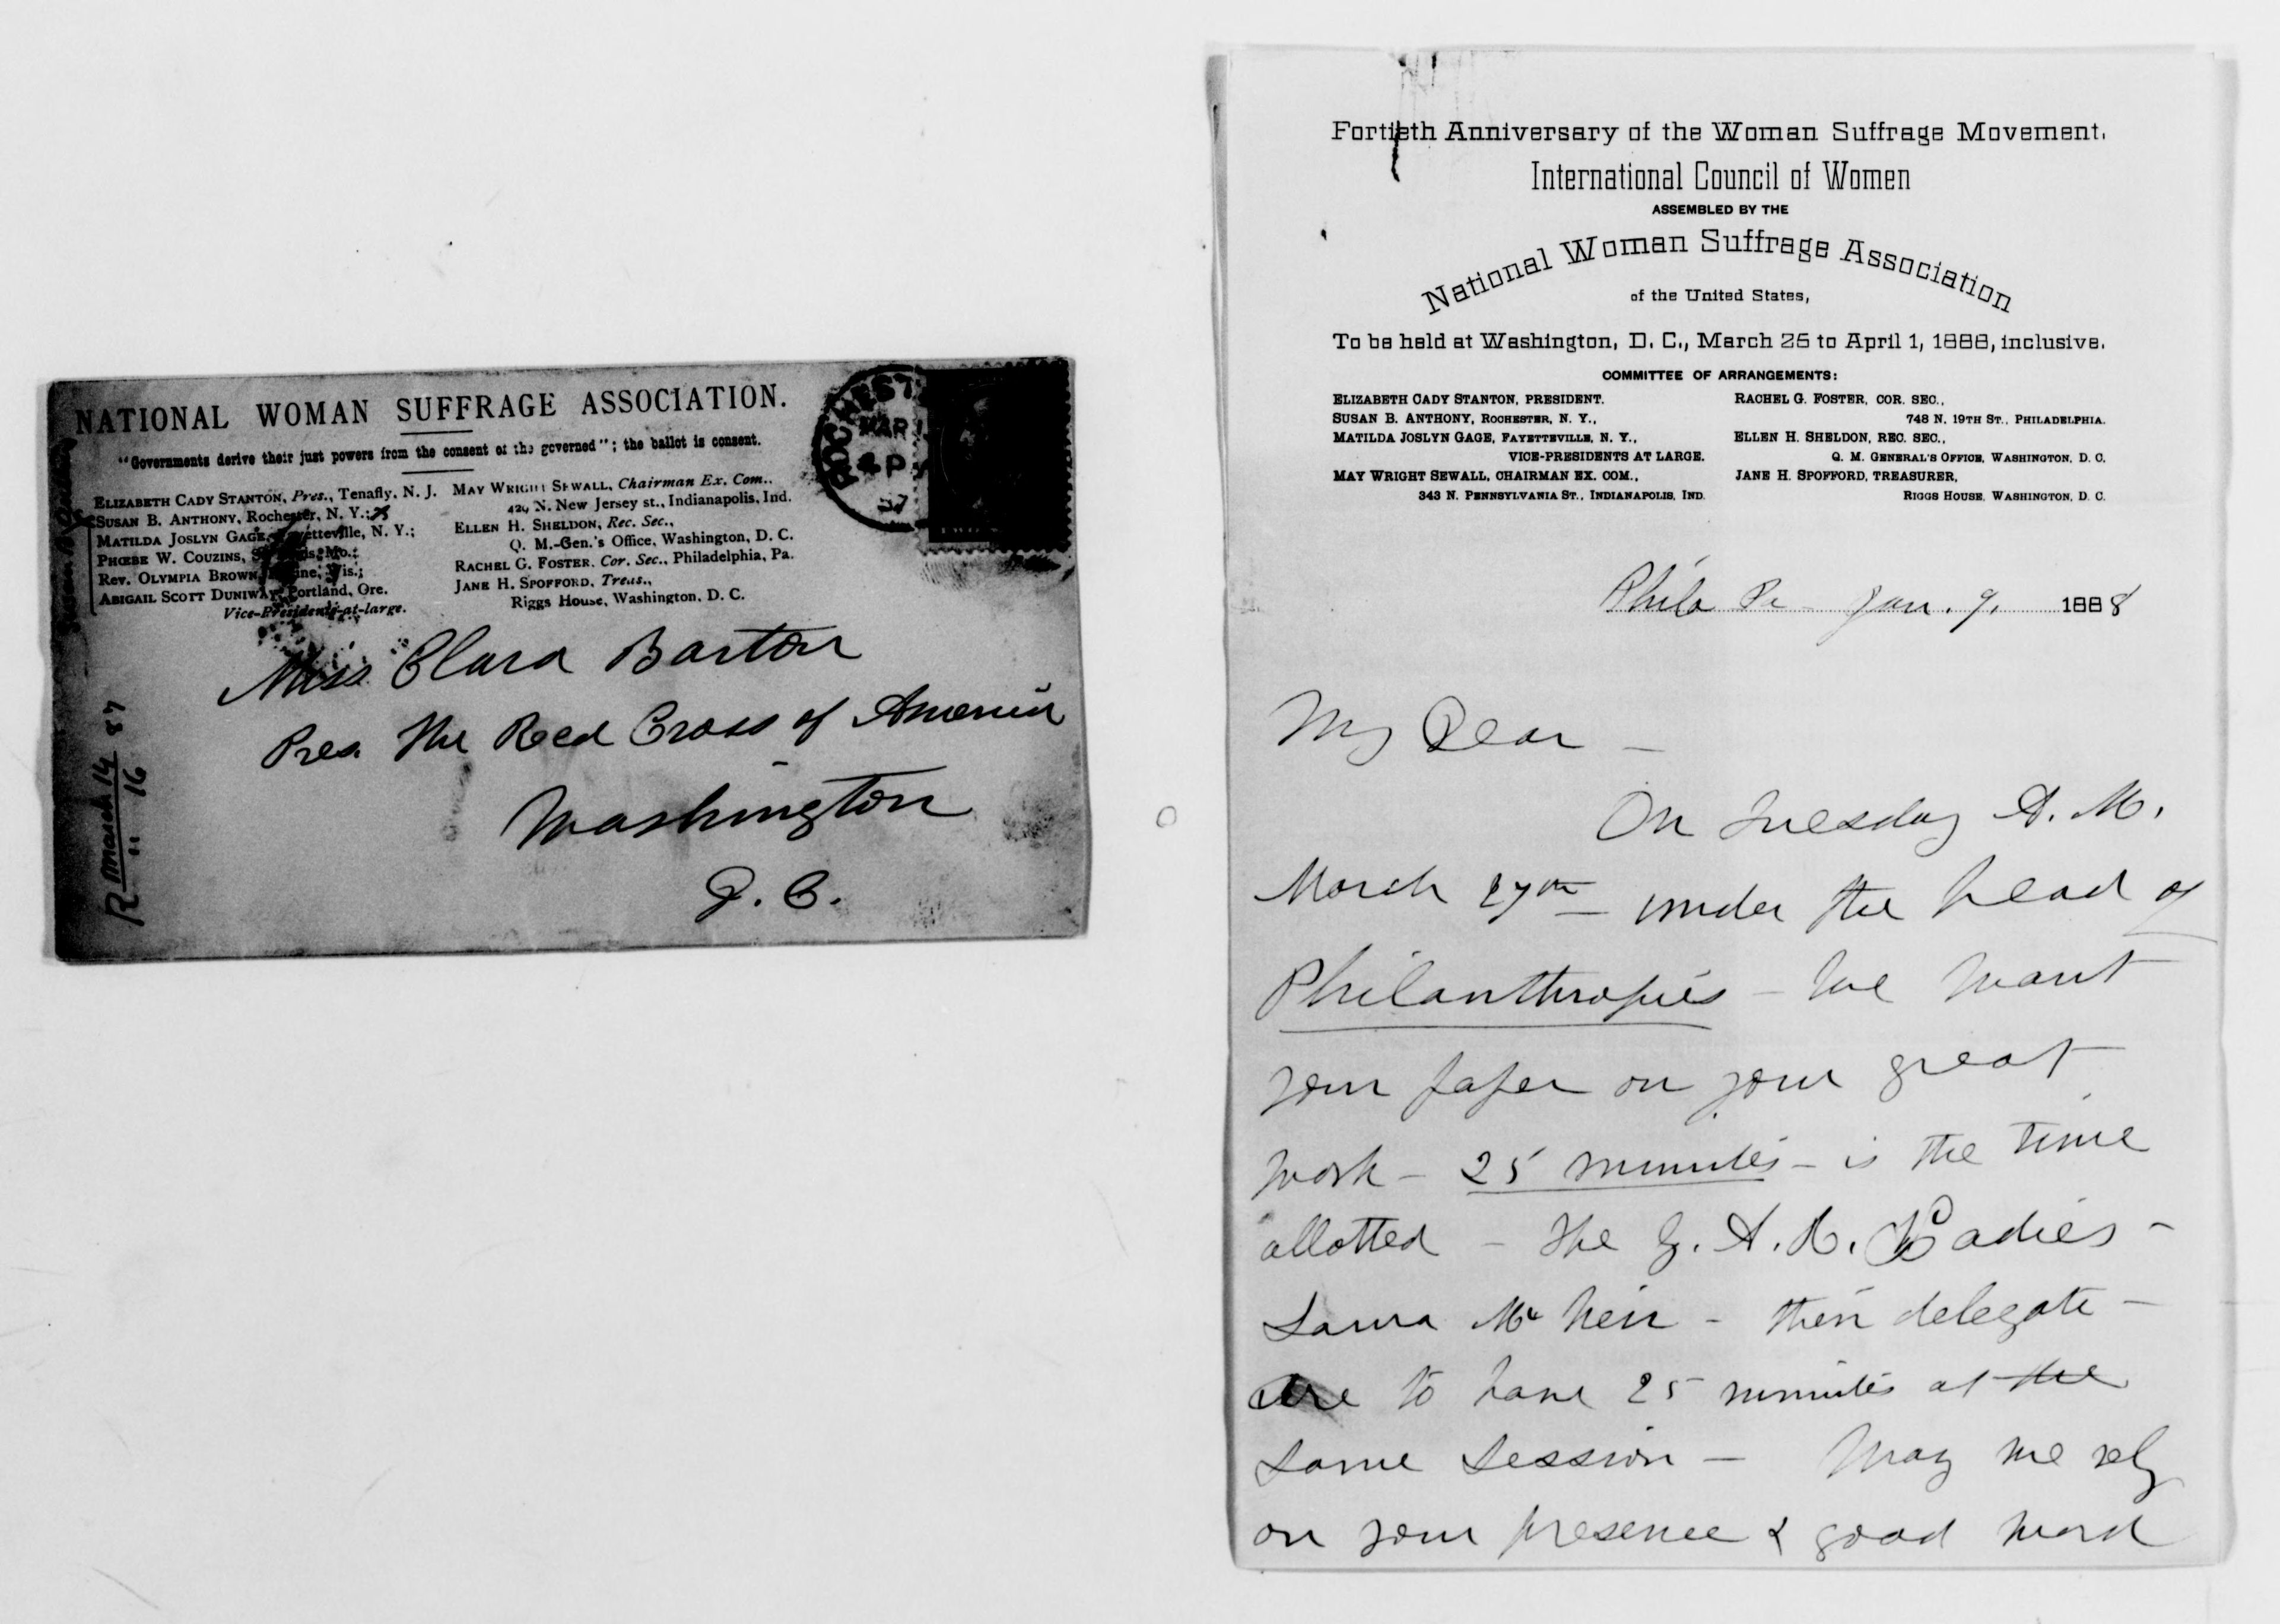 NATIONAL WOMAN SUFFRAGE ASSOCIATION.
"Governments derive their just powers from the consent of the governed"; the ballot is consent.
ELIZABETH CADY STANTON, Pres., Tenafly, N. J.
SUSAN B. ANTHONY, Rochester, N. Y.;
MATILDA JOSLYN GAGE, Fayetteville, N. Y.;
PHŒBE W. COUZINS, Mo.;
REV. OLYMPIA BROWN, Wis.;
ABIGAIL SCOTT DUNIWAY, Portland, Ore.
Vice-Presidents-at-large.
MAY WRIGHT SEWALL, Chairman Ex. Com.,
N. New Jersey st., Indianapolis, Ind.
ELLEN H. SHELDON, Rec. Sec.,
Q. M.-Gen.'s Office, Washington, D. C.
RACHEL G. FOSTER, Cor. Sec., Philadelphia, Pa.
JANE H. SPOFFORD, Treas.,
Riggs House, Washington, D. C.
ROCHEST
MAR
4 P
87
Miss Clara Barton
Pres. The Red Cross of America
Washington
D. C.
R March 14 87
" 16
Fortieth Anniversary of the Woman Suffrage Movement.
International Council of Women
ASSEMBLED BY THE
National Woman Suffrage Association
of the United States,
To be held at Washington, D. C., March 25 to April 1, 1888, inclusive.
COMMITTEE OF ARRANGEMENTS:
ELIZABETH CADY STANTON, PRESIDENT.
SUSAN B. ANTHONY, ROCHESTER, N. Y.,
MATILDA JOSLYN GAGE, FAYETTEVILLE, N. Y.,
VICE-PRESIDENTS AT LARGE.
MAY WRIGHT SEWALL, CHAIRMAN EX. COM.,
343 N. PENNSYLVANIA ST., INDIANAPOLIS, IND.
RACHEL G. FOSTER, COR. SEC.,
748 N. 19TH ST., PHILADELPHIA.
ELLEN H. SHELDON, REC. SEC.,
Q. M. GENERAL'S OFFICE, WASHINGTON, D. C.
JANE H. SPOFFORD, TREASURER,
RIGGS HOUSE, WASHINGTON, D. C.
Phila Pa Jan. 9. 1888
My Dear —
On Tuesday A. M.
March 27th — under the head of
Philanthropies — we want
your paper on your great
work — 25 minutes — is the time
allotted — The G. A. R. Ladies —
Laura Mc Neir — their delegate —
are to have 25 minutes at the
same session — May we rely
on your presence & good word